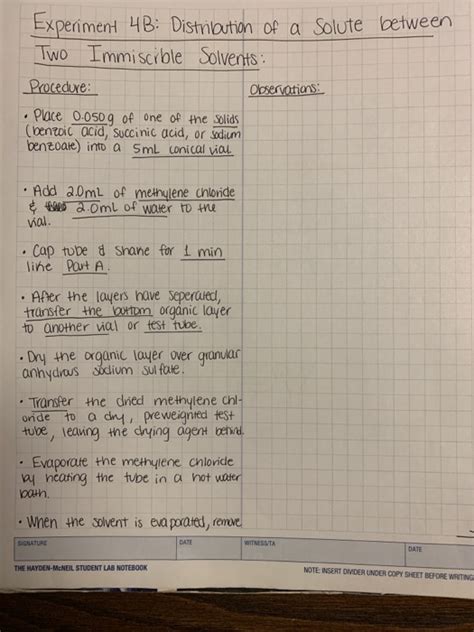 Experiment 4B: Distribution of a Solute between
Two Immiscible Solvents:
Procedure:
Observations:
• Place 0.050g of one of the solids
(benzoic acid, succinic acid, or sodium
benzoate) into a 5mL conical vial
• Add 2.0mL of methylene chloride
& 2.0mL of water to the
vial.
• Cap tube & shake for 1 min
like Part A.
• After the layers have seperated,
transfer the bottom organic layer
to another vial or test tube.
• Dry the organic layer over granular
anhydrous sodium sulfate.
• Transfer the dried methylene chl-
oride to a dry, preweighted test
tube, leaving the drying agent behind.
• Evaporate the methylene chloride
by heating the tube in a hot water
bath.
• When the solvent is evaporated, remove
SIGNATURE DATE WITNESS/TA DATE
THE HAYDEN-McNEIL STUDENT LAB NOTEBOOK
NOTE: INSERT DIVIDER UNDER COPY SHEET BEFORE WRITING